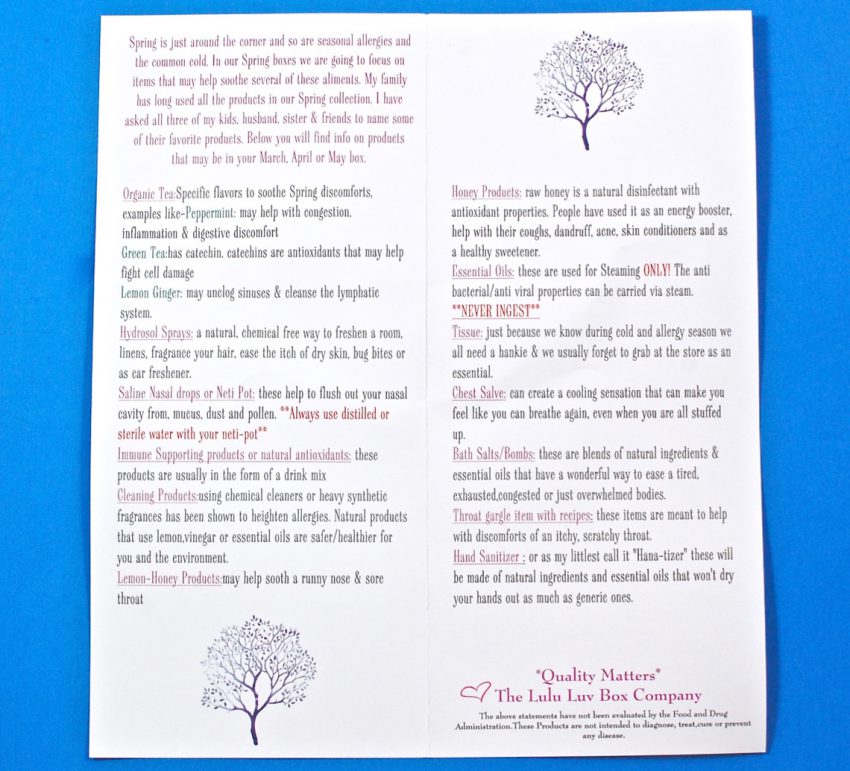 Spring is just around the corner and so are seasonal allergies and
the common cold. In our Spring boxes we are going to focus on
items that may help soothe several of these aliments. My family
has long used all the products in our Spring collection. I have
asked all three of my kids, husband, sister & friends to name some
of their favorite products. Below you will find info on products
that may be in your March, April or May box.
Organic Tea:Specific flavors to soothe Spring discomforts,
examples like-Peppermint: may help with congestion,
inflammation & digestive discomfort
Green Tea:has catechin, catechins are antioxidants that may help
fight cell damage
Lemon Ginger: may unclog sinuses & cleanse the lymphatic
system.
Hydrosol Sprays: a natural, chemical free way to freshen a room,
linens, fragrance your hair, ease the itch of dry skin, bug bites or
as car freshener.
Saline Nasal drops or Neti Pot: these help to flush out your nasal
cavity from, mucus, dust and pollen. **Always use distilled or
sterile water with your neti-pot**
Immune Supporting products or natural antioxidants: these
products are usually in the form of a drink mix
Cleaning Products:using chemical cleaners or heavy synthetic
fragrances has been shown to heighten allergies. Natural products
that use lemon,vinegar or essential oils are safer/healthier for
you and the environment.
Lemon-Honey Products:may help sooth a runny nose & sore
throat
Honey Products: raw honey is a natural disinfectant with
antioxidant properties. People have used it as an energy booster,
help with their coughs, dandruff, acne, skin conditioners and as
a healthy sweetener.
Essential Oils: these are used for Steaming ONLY! The anti
bacterial/anti viral properties can be carried via steam.
**NEVER INGEST**
Tissue: just because we know during cold and allergy season we
all need a hankie & we usually forget to grab at the store as an
essential.
Chest Salve: can create a cooling sensation that can make you
feel like you can breathe again, even when you are all stuffed
up.
Bath Salts/Bombs: these are blends of natural ingredients &
essential oils that have a wonderful way to ease a tired,
exhausted,congested or just overwhelmed bodies.
Throat gargle item with recipes: these items are meant to help
with discomforts of an itchy, scratchy throat.
Hand Sanitizer : or as my littlest call it "Hana-tizer" these will
be made of natural ingredients and essential oils that won't dry
your hands out as much as generic ones.
*Quality Matters*
The Lulu Luv Box Company
The above statements have not been evaluated by the Food and Drug
Administration.These Products are not intended to diagnose, treat,cure or prevent
any disease.